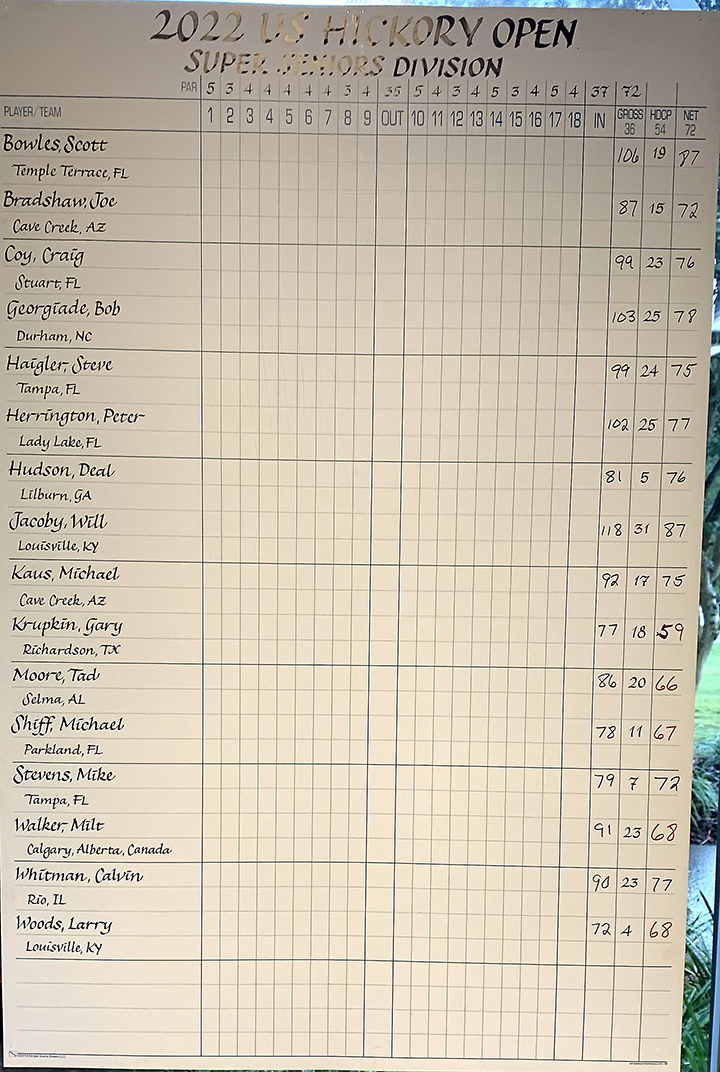 2022 US HICKORY OPEN
SUPER SENIORS DIVISION
PAR 5 3 4 4 4 4 4 3 4 35 5 4 3 4 5 3 4 5 4 37 72
PLAYER/TEAM 1 2 3 4 5 6 7 8 9 OUT 10 11 12 13 14 15 16 17 18 IN GROSS HDCP NET
36 54 72
Bowles, Scott 106 19 87
Temple Terrace, FL
Bradshaw, Joe 87 15 72
Cave Creek, AZ
Coy, Craig 99 23 76
Stuart, FL
Georgiade, Bob 103 25 78
Durham, NC
Haigler, Steve 99 24 75
Tampa, FL
Herrington, Peter 102 25 77
Lady Lake, FL
Hudson, Deal 81 5 76
Lilburn, GA
Jacoby, Will 118 31 87
Louisville, KY
Kaus, Michael 92 17 75
Cave Creek, AZ
Krupkin, Gary 77 18 59
Richardson, TX
Moore, Tad 86 20 66
Selma, AL
Shiff, Michael 78 11 67
Parkland, FL
Stevens, Mike 79 7 72
Tampa, FL
Walker, Milt 91 23 68
Calgary, Alberta, Canada
Whitman, Calvin 90 23 77
Rio, IL
Woods, Larry 72 4 68
Louisville, KY